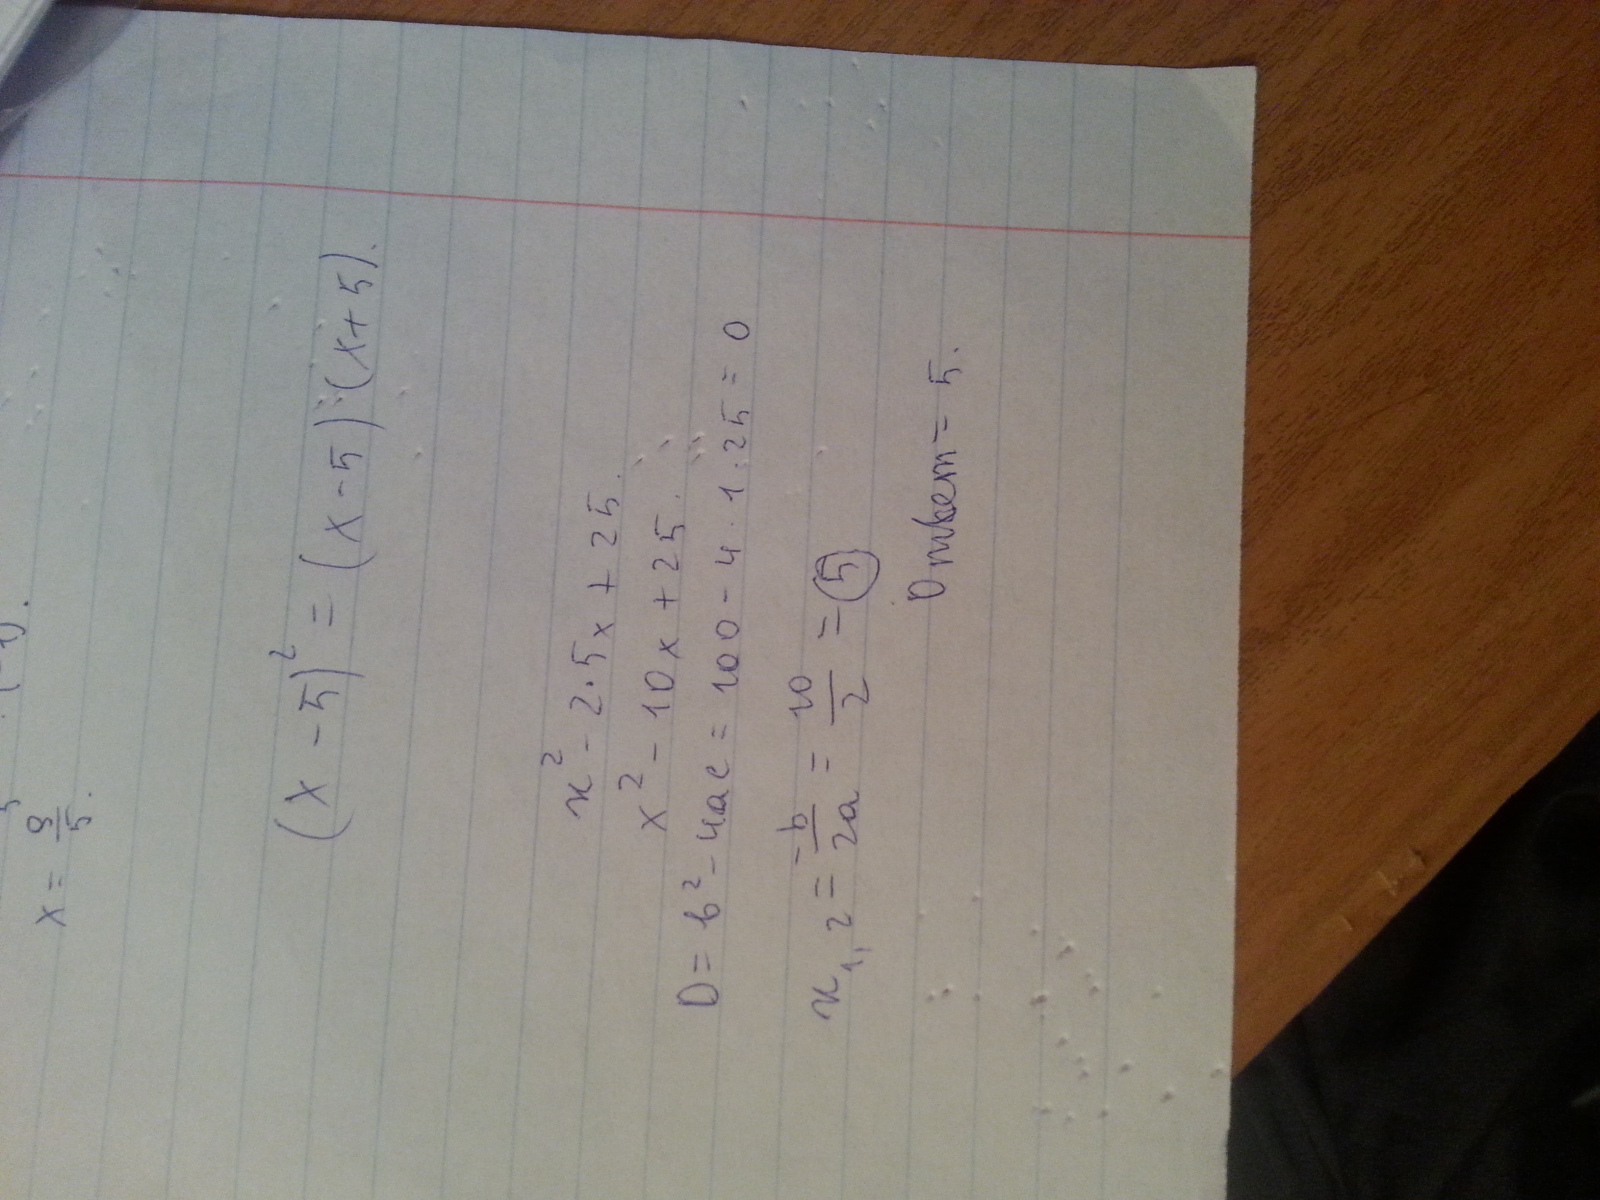 x = 9/5.
(x - 5)² = (x - 5) (x + 5).
x² - 2·5x + 25.
x² - 10x + 25.
D = b² - 4ac = 100 - 4·1·25 = 0
x₁,₂ = -b/2a = 10/2 = 5
Ответ = 5.